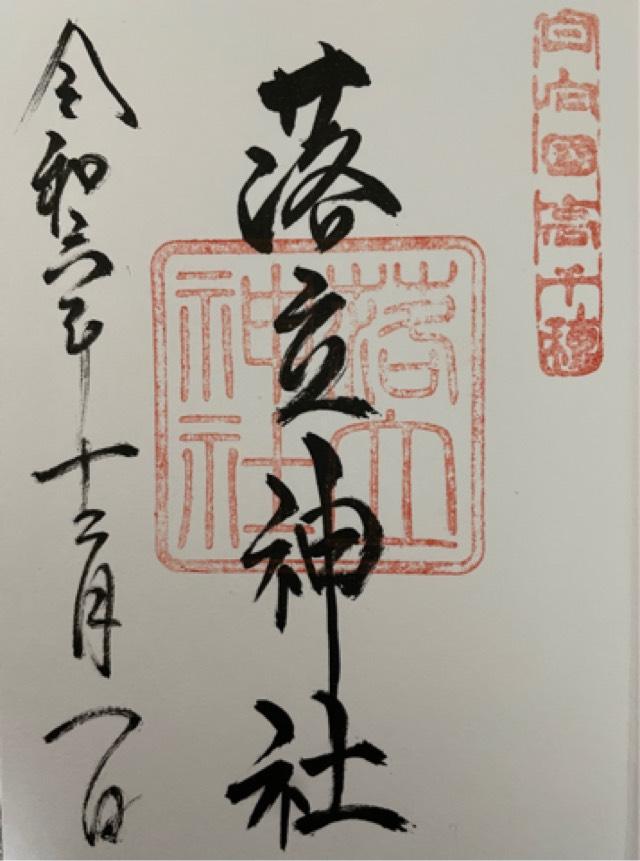 日向国高千穂
落立神社
落立神社
令和六年十二月一日